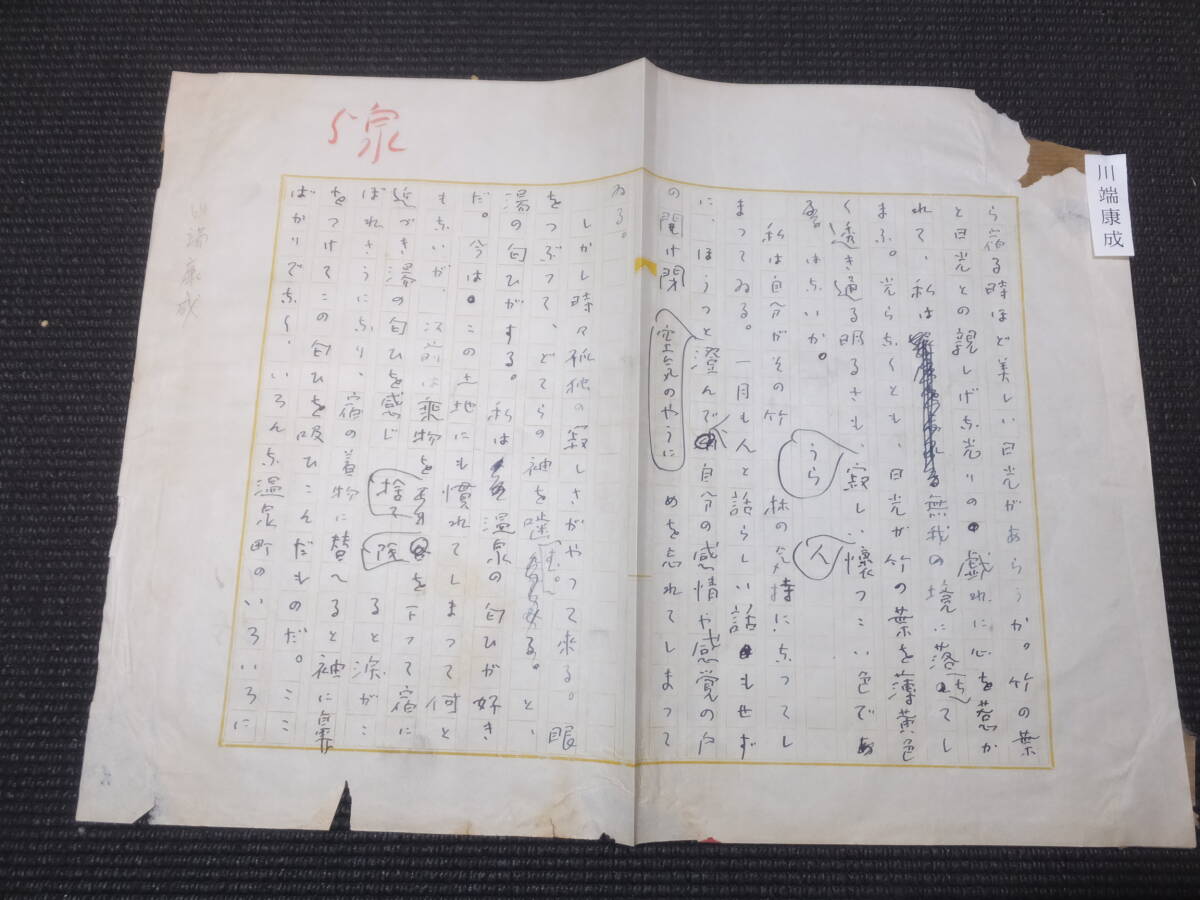 川端康成
ら宿る時ほど美しい日光があらうか。竹の葉
と日光との親しげな光りの戯れに心を惹か
れて、私は無我の境に落ちてし
まふ。光らなくとも、日光が竹の葉を薄黄色
く透き通る明るさも、うら寂しい人懐つこい色であ
はないか。
私は自分がその竹林の気持になつてし
まつてゐる。一月も人と話らしい話もせず
に、空気のやうにほうつと澄んで自分の感情や感覚の戸
の開け閉めを忘れてしまつて
ゐる。
しかし時々孤独の寂しさがやつて来る。眼
をつぶつて、どてらの袖を噛む。と、
湯の匂ひがする。私は温泉の匂ひが好き
だ。今はこの土地にも慣れてしまつて何と
もないが、以前は乗物を捨て坂を下つて宿に
近づき湯の匂ひを感じると涙がこ
ぼれさうになり、宿の着物に替へると袖に鼻
をつけてこの匂ひを吸ひこんだものだ。ここ
ばかりでなく、いろんな温泉町のいろいろに
川端康成